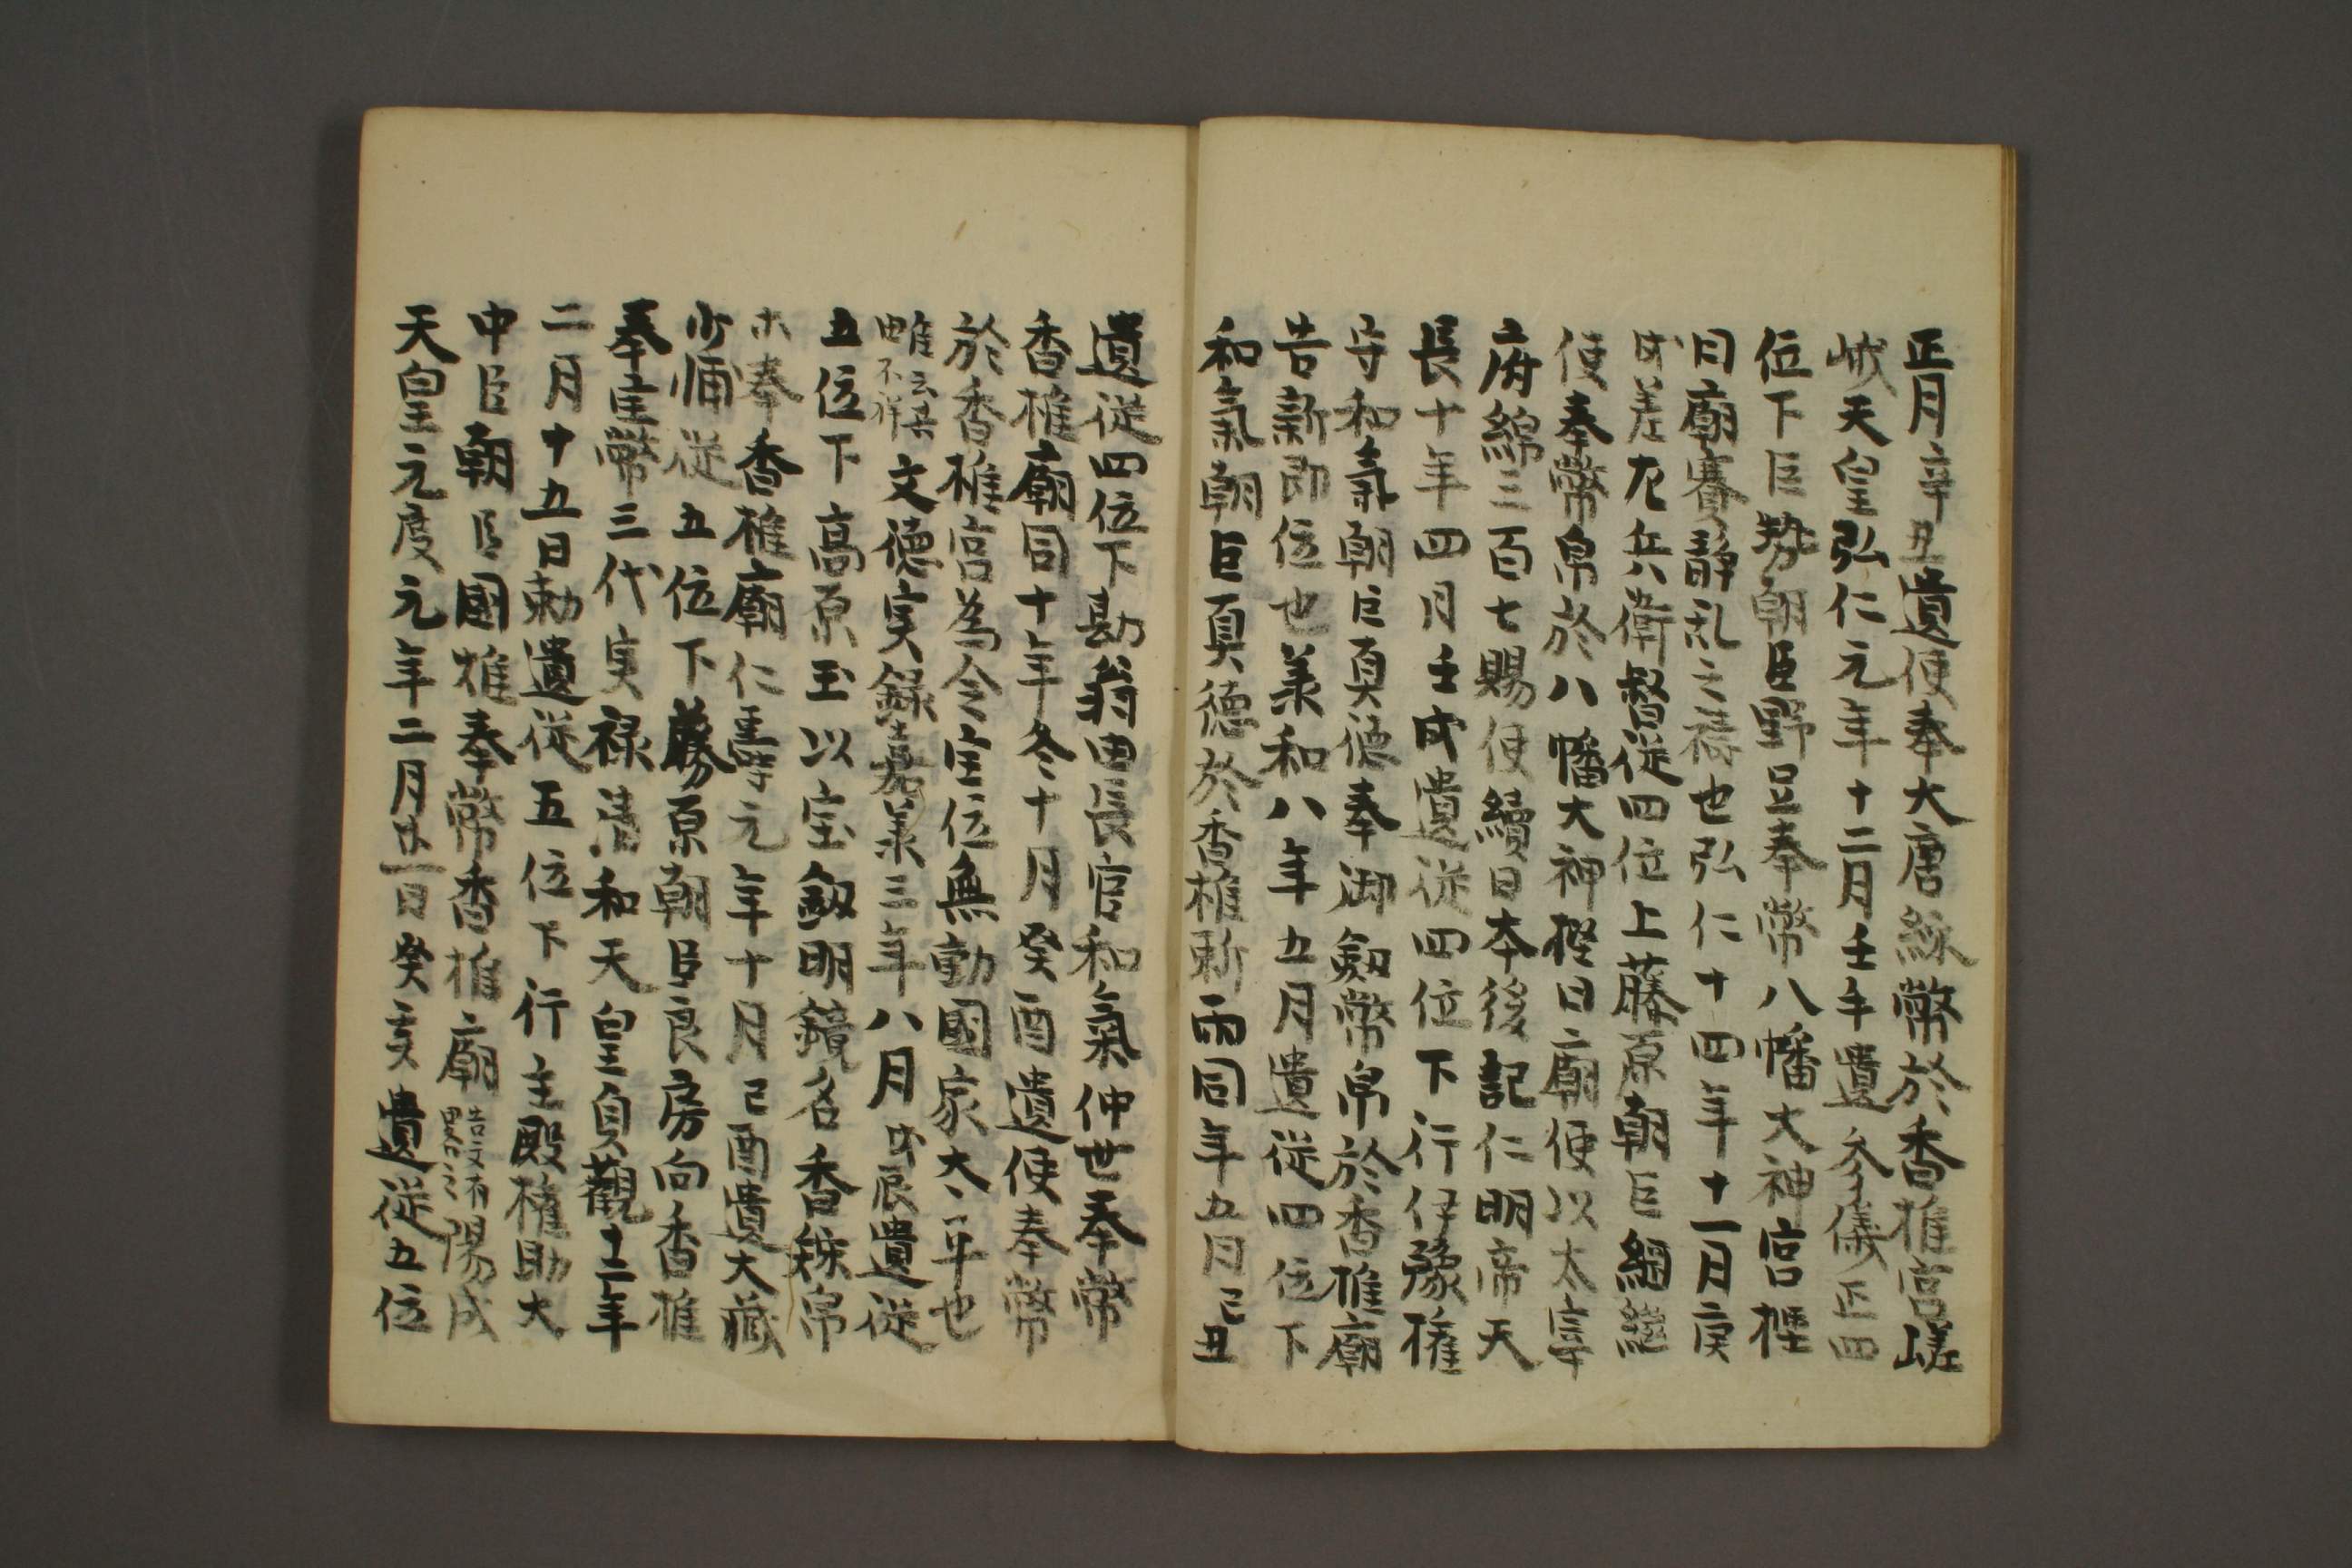 正月辛丑遣使奉大唐綵幣於香椎宮嵯
峨天皇弘仁元年十二月壬午遣参儀正四
位下巨勢朝臣野足奉幣八幡大神宮樫
日廟賽静乱之祷也弘仁十四年十一月庚
戌差左兵衛督従四位上藤原朝臣綱継
使奉幣帛於八幡大神樫日廟便以太宰
府綿三百七賜使續日本後記仁明帝天
長十年四月壬戌遣従四位下行伊豫権
守和氣朝臣真徳奉御釼幣帛於香椎廟
告新即位也義和八年五月遣従四位下
和氣朝臣真徳於香椎祈雨同年五月己丑
遣従四位下勘解由長官和氣仲世奉幣
香椎廟同十年冬十月癸酉遣使奉幣
於香椎宮為令宝位無動國家太平也
雖云其
由不詳文徳実録嘉義三年八月戌辰遣従
五位下高原王以宝釼明鏡名香綵帛
木奉香椎廟仁壽元年十月己酉遣大藏
少輔従五位下藤原朝臣良房向香椎
奉宝幣三代実禄清和天皇貞觀十二年
二月十五日勅遣従五位下行主殿権助大
中臣朝臣國雄奉幣香椎廟告文有
畧之陽成
天皇元慶元年二月廿一日癸亥遣従五位